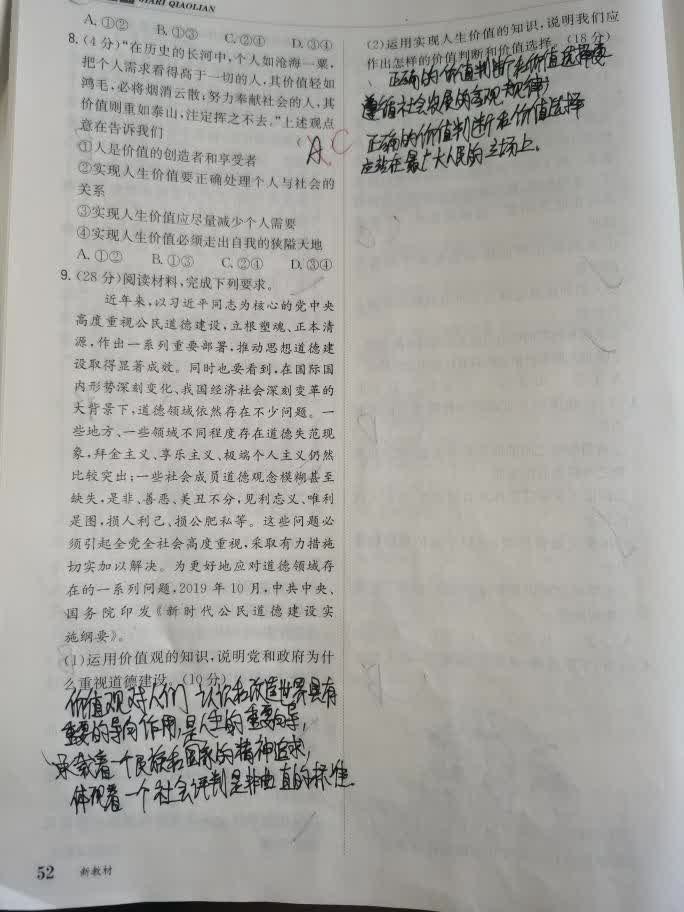 JIARI QIAOLIAN
A.①② B.①③ C.②④ D.③④
8.(4分)“在历史的长河中,个人如沧海一粟,
把个人需求看得高于一切的人,其价值轻如
鸿毛,必将烟消云散;努力奉献社会的人,其
价值则重如泰山,注定挥之不去。”上述观点
意在告诉我们
( A C
①人是价值的创造者和享受者
②实现人生价值要正确处理个人与社会的
关系
③实现人生价值应尽量减少个人需要
④实现人生价值必须走出自我的狭隘天地
A.①② B.①③ C.②④ D.③④
9.(28分)阅读材料,完成下列要求。
近年来,以习近平同志为核心的党中央
高度重视公民道德建设,立根塑魂、正本清
源,作出一系列重要部署,推动思想道德建
设取得显著成效。同时也要看到,在国际国
内形势深刻变化、我国经济社会深刻变革的
大背景下,道德领域依然存在不少问题。一
些地方、一些领域不同程度存在道德失范现
象,拜金主义、享乐主义、极端个人主义仍然
比较突出;一些社会成员道德观念模糊甚至
缺失,是非、善恶、美丑不分,见利忘义、唯利
是图,损人利己、损公肥私等。这些问题必
须引起全党全社会高度重视,采取有力措施
切实加以解决。为更好地应对道德领域存
在的一系列问题,2019年10月,中共中央、
国务院印发《新时代公民道德建设实
施纲要》。
(1)运用价值观的知识,说明党和政府为什
么重视道德建设。(10分)
价值观对人们认识和改造世界具有
重要的导向作用,是人生的重要向导,
承载着一个民族和国家的精神追求,
体现着一个社会评判是非曲直的标准.
(2)运用实现人生价值的知识,说明我们应
作出怎样的价值判断和价值选择。(18分)
正确的价值判断和价值选择要
遵循社会发展的客观规律;
正确的价值判断和价值选择
应站在最广大人民的立场上.
52 新教材